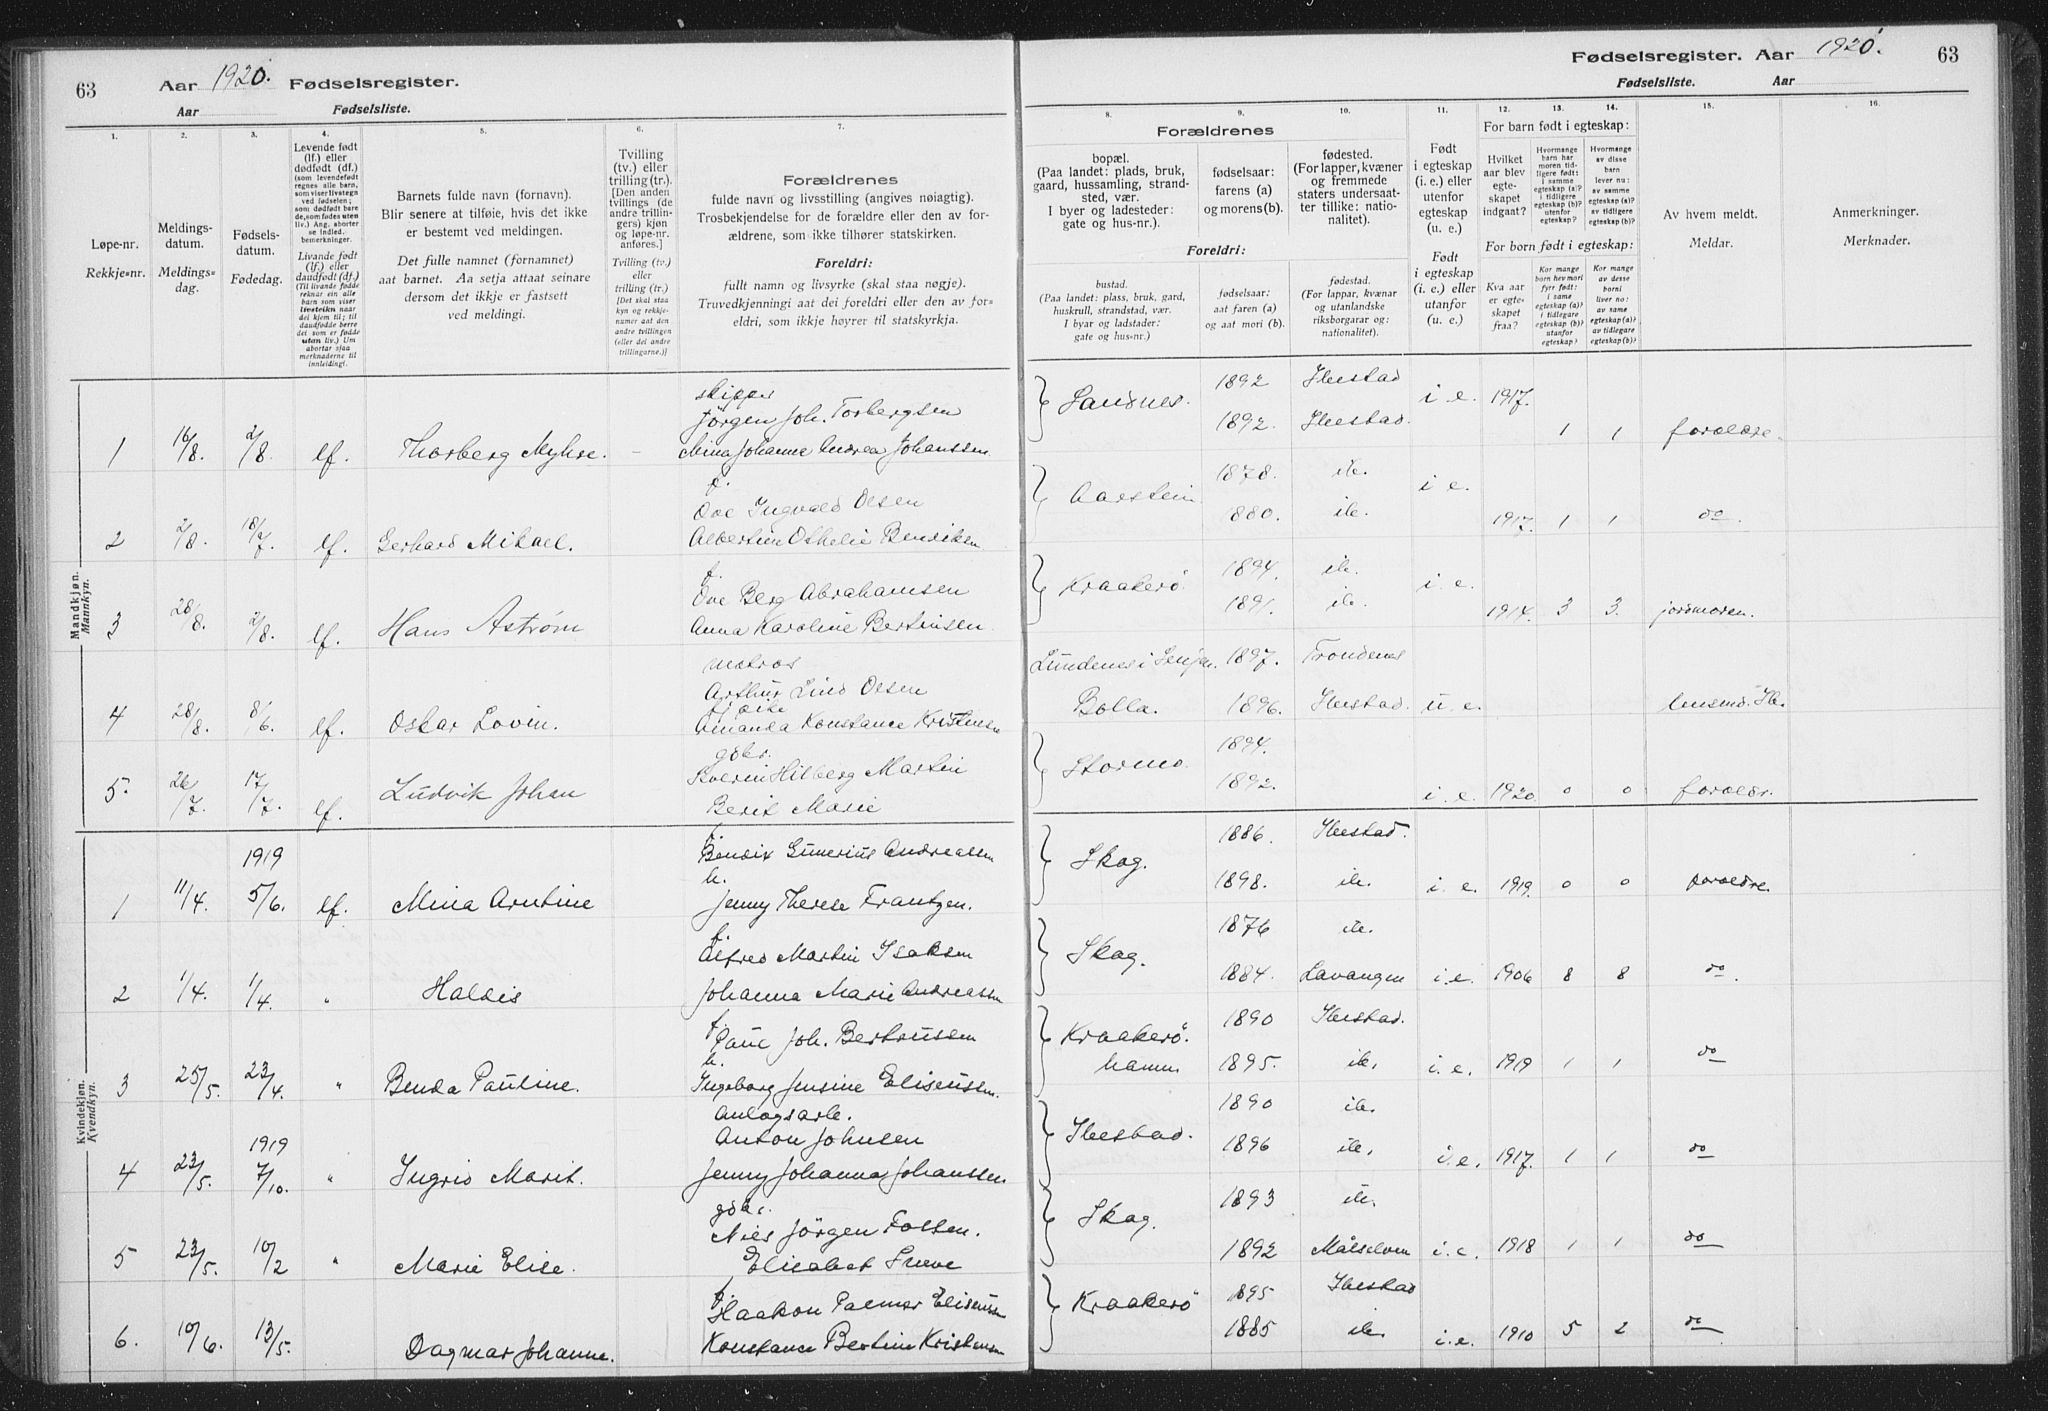 63
Aar 1920. Fødselsregister.
Aar Fødselsliste.
1.
2.
3.
4.
5.
6.
7.
Løpe-nr.
Rekkje=nr.
Meldings-
datum.
Meldings=
dag.
Fødsels-
datum.
Fødedag.
Levende født
(lf.) eller
dødfødt (df.)
(som levendefødt
regnes alle barn,
som viser livstegn
ved fødselen;
som dødfødt bare
de, som fødes uten
liv.) Ang. aborter
se indled.
bemerkninger.
Livande født
(lf.) eller
daudfødt (df.)
(Til livande fødde
reknar ein alle
barn som viser
livsteikn naar
dei kjem til; til
daudfødde berre
dei som er fødde
utan liv.) Um
abortar sjaa
merknaderne til
innleidingi.
Barnets fulde navn (fornavn).
Blir senere at tilføie, hvis det ikke
er bestemt ved meldingen.
Det fulle namnet (fornamnet)
aat barnet. Aa setja attaat seinare
dersom det ikkje er fastsett
ved meldingi.
Tvilling
(tv.) eller
trilling (tr.).
[Den anden
tvillings (de
andre trillin-
gers) kjøn
og løpe-nr.
anføres.]
Tvilling (tv.)
eller
trilling (tr.)
[Det skal staa
kyn og rekkje-
numer aat den
andre tvillingen
(eller dei andre
trillingarne.)]
Forældrenes
fulde navn og livsstilling (angives nøiagtig).
Trosbekjendelse for de forældre eller den av for-
ældrene, som ikke tilhører statskirken.
Foreldri:
fullt namn og livsyrke (skal staa nøgje).
Truvedkjenningi aat dei foreldri eller den av for=
eldri, som ikkje høyrer til statskyrkja.
Mandkjøn.
Mannkyn.
1 16/8. 2/8. lf. Thorberg Myhre. - skipper
Jörgen Joh. Torbergsen
Mina Johanne Andrea Johanssen
2 2/8. 18/7. lf. Gerhard Mikael. f.
Ove Ingvald Olsen
Albertine Othelie Bendiksen
3 28/8. 2/8. lf. Hans Aström f.
Ove Berg Abrahamsen
Anna Karoline Bertinsen
4 28/8. 8/6. lf. Oskar Lovin. matros
Arthur Lind Olsen
Amanda Konstance Kristensen
5. 26/7. 17/7. lf. Ludvik Johan gdbr.
Hilberg Martin
Berit Marie
Kvindekjøn.
Kvendkyn.
1 11/4. 1919 5/6. lf. Mina Arntine f.
Bendix Gunerius Andreassen
h.
Jenny Therese Frantzen.
2 1/4. 1/4. " Haldis f.
Alfred Martin Isaksen
Johanna Marie Andreassen
3 25/5. 23/4. " Benda Pauline. f.
Paul Joh. Berteussen
h.
Ingeborg Jensine Eliseussen.
4 23/5. 1919 7/10. " Ingrid Marit. Anlægsarb.
Anton Johnsen
Jenny Johanna Johanssen
5 23/5. 10/2 " Marie Elise. gdbr.
Nils Jörgen Fossen.
Elisabet
6. 10/6. 13/5. Dagmar Johanne. f.
Haakon Palmer Eliseussen
Konstance Bertine Kristensen
Fødselsregister. Aar 1920. 63
Fødselsliste. Aar
8.
9.
10.
11.
12.
13.
14.
15.
16.
Forældrenes
bopæl.
(Paa landet: plads, bruk,
gaard, hussamling, strand-
sted, vær.
I byer og ladesteder:
gate og hus-nr.).
fødselsaar:
farens (a)
og morens (b).
fødested.
(For lapper, kvæner
og fremmede
staters undersaat-
ter tillike: natio-
nalitet).
Foreldri:
bustad.
(Paa landet: plass, bruk, gard,
huskrull, strandstad, vær.
I byar og ladstader:
gate og hus-nr.)
fødselsaar:
aat faren (a)
og aat mori (b).
fødestad.
(For lappar, kvænar
og utanlandske
riksborgarar og:
nationalitet).
Født
i egteskap
(i. e.) eller
utenfor
egteskap
(u. e.)
Født
i egteskap
(i. e.) eller
utanfor
(u. e.)
For barn født i egteskap:
Hvilket
aar blev
egte-
skapet
indgaat?
Hvormange
barn har
moren tid-
ligere født:
i samme
egteskap (a)?
i tidligere
egteskap (b)?
utenfor
egteskap?
Hvormange
av disse
barn
lever nu:
av samme
egteskap (a)?
av tidligere
egteskap (b)?
For born født i egteskap:
Kva aar
er egte-
skapet
fraa?
Kor mange
born hev mori
fyrr født:
i same
egteskap (a)?
i tidlegare
egteskap (b)?
utanfor
egteskap?
Kor mange
av desse
borni
liver no:
av same
egteskap (a)?
av tidlegare
egteskap (b)?
Av hvem meldt.
Meldar.
Anmerkninger.
Merknader.
Sandnes. 1892 Ibestad i. e. 1917.
1892. Ibestad. 1 1 foreldre.
Aarstein 1878. ib. i e.
1880. ib. 1917. 1 1 do.
Kraakerö 1894. ib. i. e.
1891. ib. 1914. 3 3. jordmoren.
Lundenes i Senjen. 1897. Trondenes
Bolla. 1896. Ibestad. u. e. lensmd. Ib.
Stormo. 1894.
1892. i. e. 1920 0 0 foreldr.
Skog. 1886. Ibestad.
1898. ib. i. e. 1919. 0 0 foreldre.
Skog. 1876 ib.
1884. Lavangen i. e. 1906 8 8 do.
Kraakerö 1890 Ibestad.
hamn 1895. ib. i. e. 1919 1 1 do
Ibestad. 1890 ib.
1896 ib. i. e. 1917. 1 1 do
Skog. 1893 ib.
1892 Målselven i. e. 1918 1 1 do
Kraakerö 1895 Ibestad
1885 ib. i. e. 1910 5 2 do